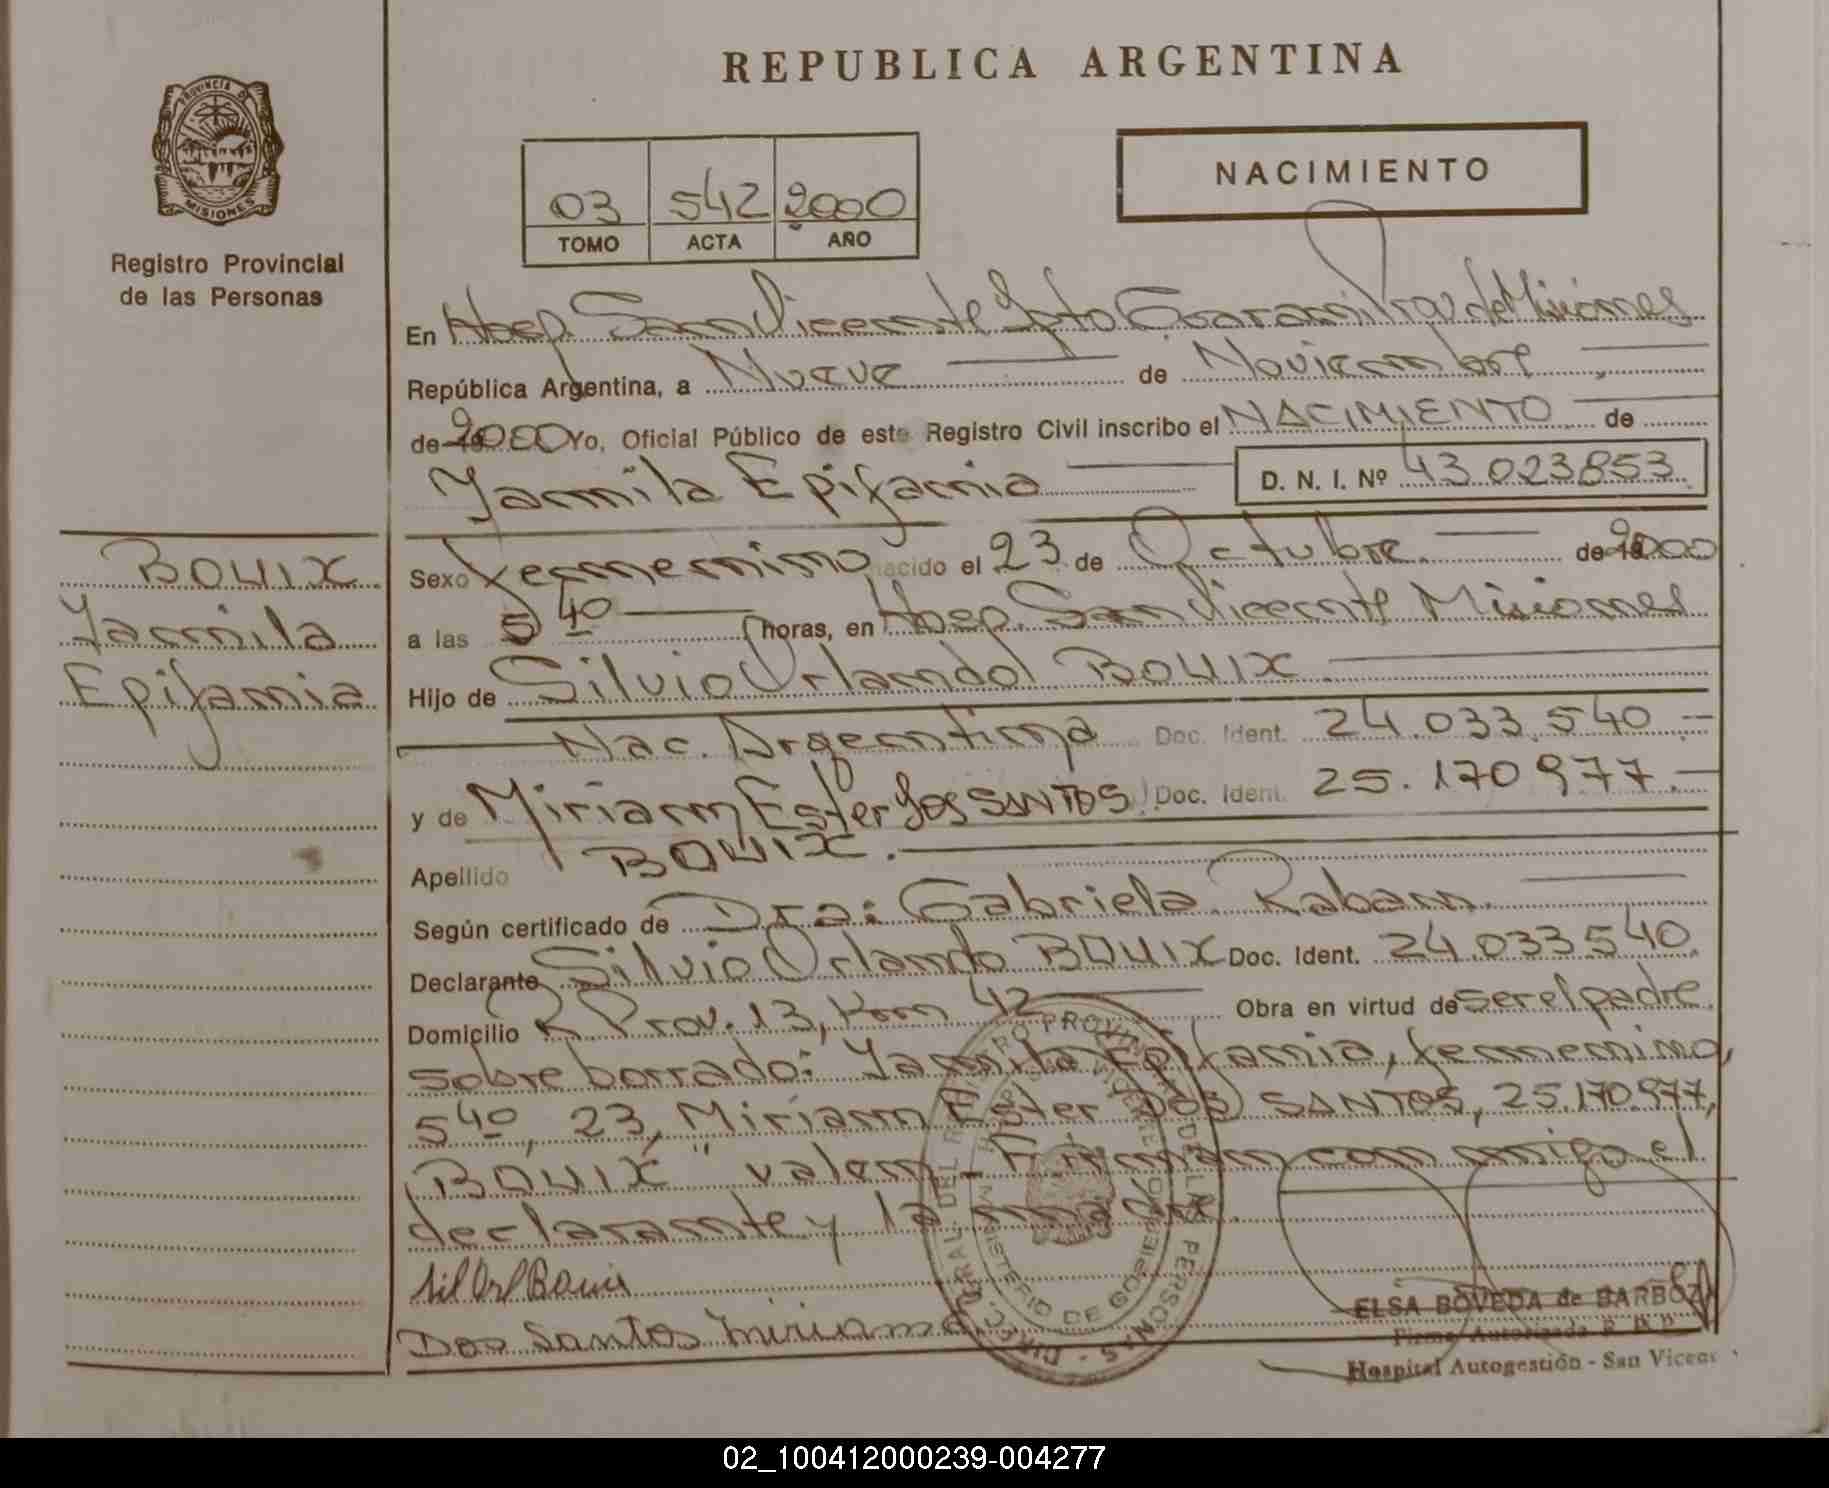 REPUBLICA ARGENTINA
PROVINCIA DE
MISIONES
Registro Provincial
de las Personas
NACIMIENTO
03 542 2000
TOMO ACTA AÑO
En Hosp. San Vicente Dpto Guaraní Prov de Misiones
República Argentina, a Nueve de Noviembre
de 2000 Yo, Oficial Público de este Registro Civil inscribo el NACIMIENTO de
Yamila Epifania D. N. I. Nº 43.023853
BOUIX
Yamila
Epifania
Sexo femenino nacido el 23 de Octubre de 2000
a las 5 40 horas, en Hosp. San Vicente Misiones
Hijo de Silvio Orlando BOUIX
Nac. Argentina Doc. Ident. 24.033.540
y de Miriam Ester Dos SANTOS Doc. Ident. 25.170977
Apellido BOUIX.
Según certificado de Dra: Gabriela Raban
Declarante Silvio Orlando BOUIX Doc. Ident. 24.033540
Domicilio R Prov. 13, Km 42 Obra en virtud de ser el padre
sobre borrado: Yamila Epifania, femenino,
5 40, 23, Miriam Ester Dos SANTOS, 25.170.977,
BOUIX" valen. Firman con migo el
declarante y la madre.
Sil Orl Bouix
Dos Santos Miriam
ELSA BOVEDA de BARBOZA
Firma Autorizada R. P. P.
Hospital Autogestión - San Vicente
02_100412000239-004277